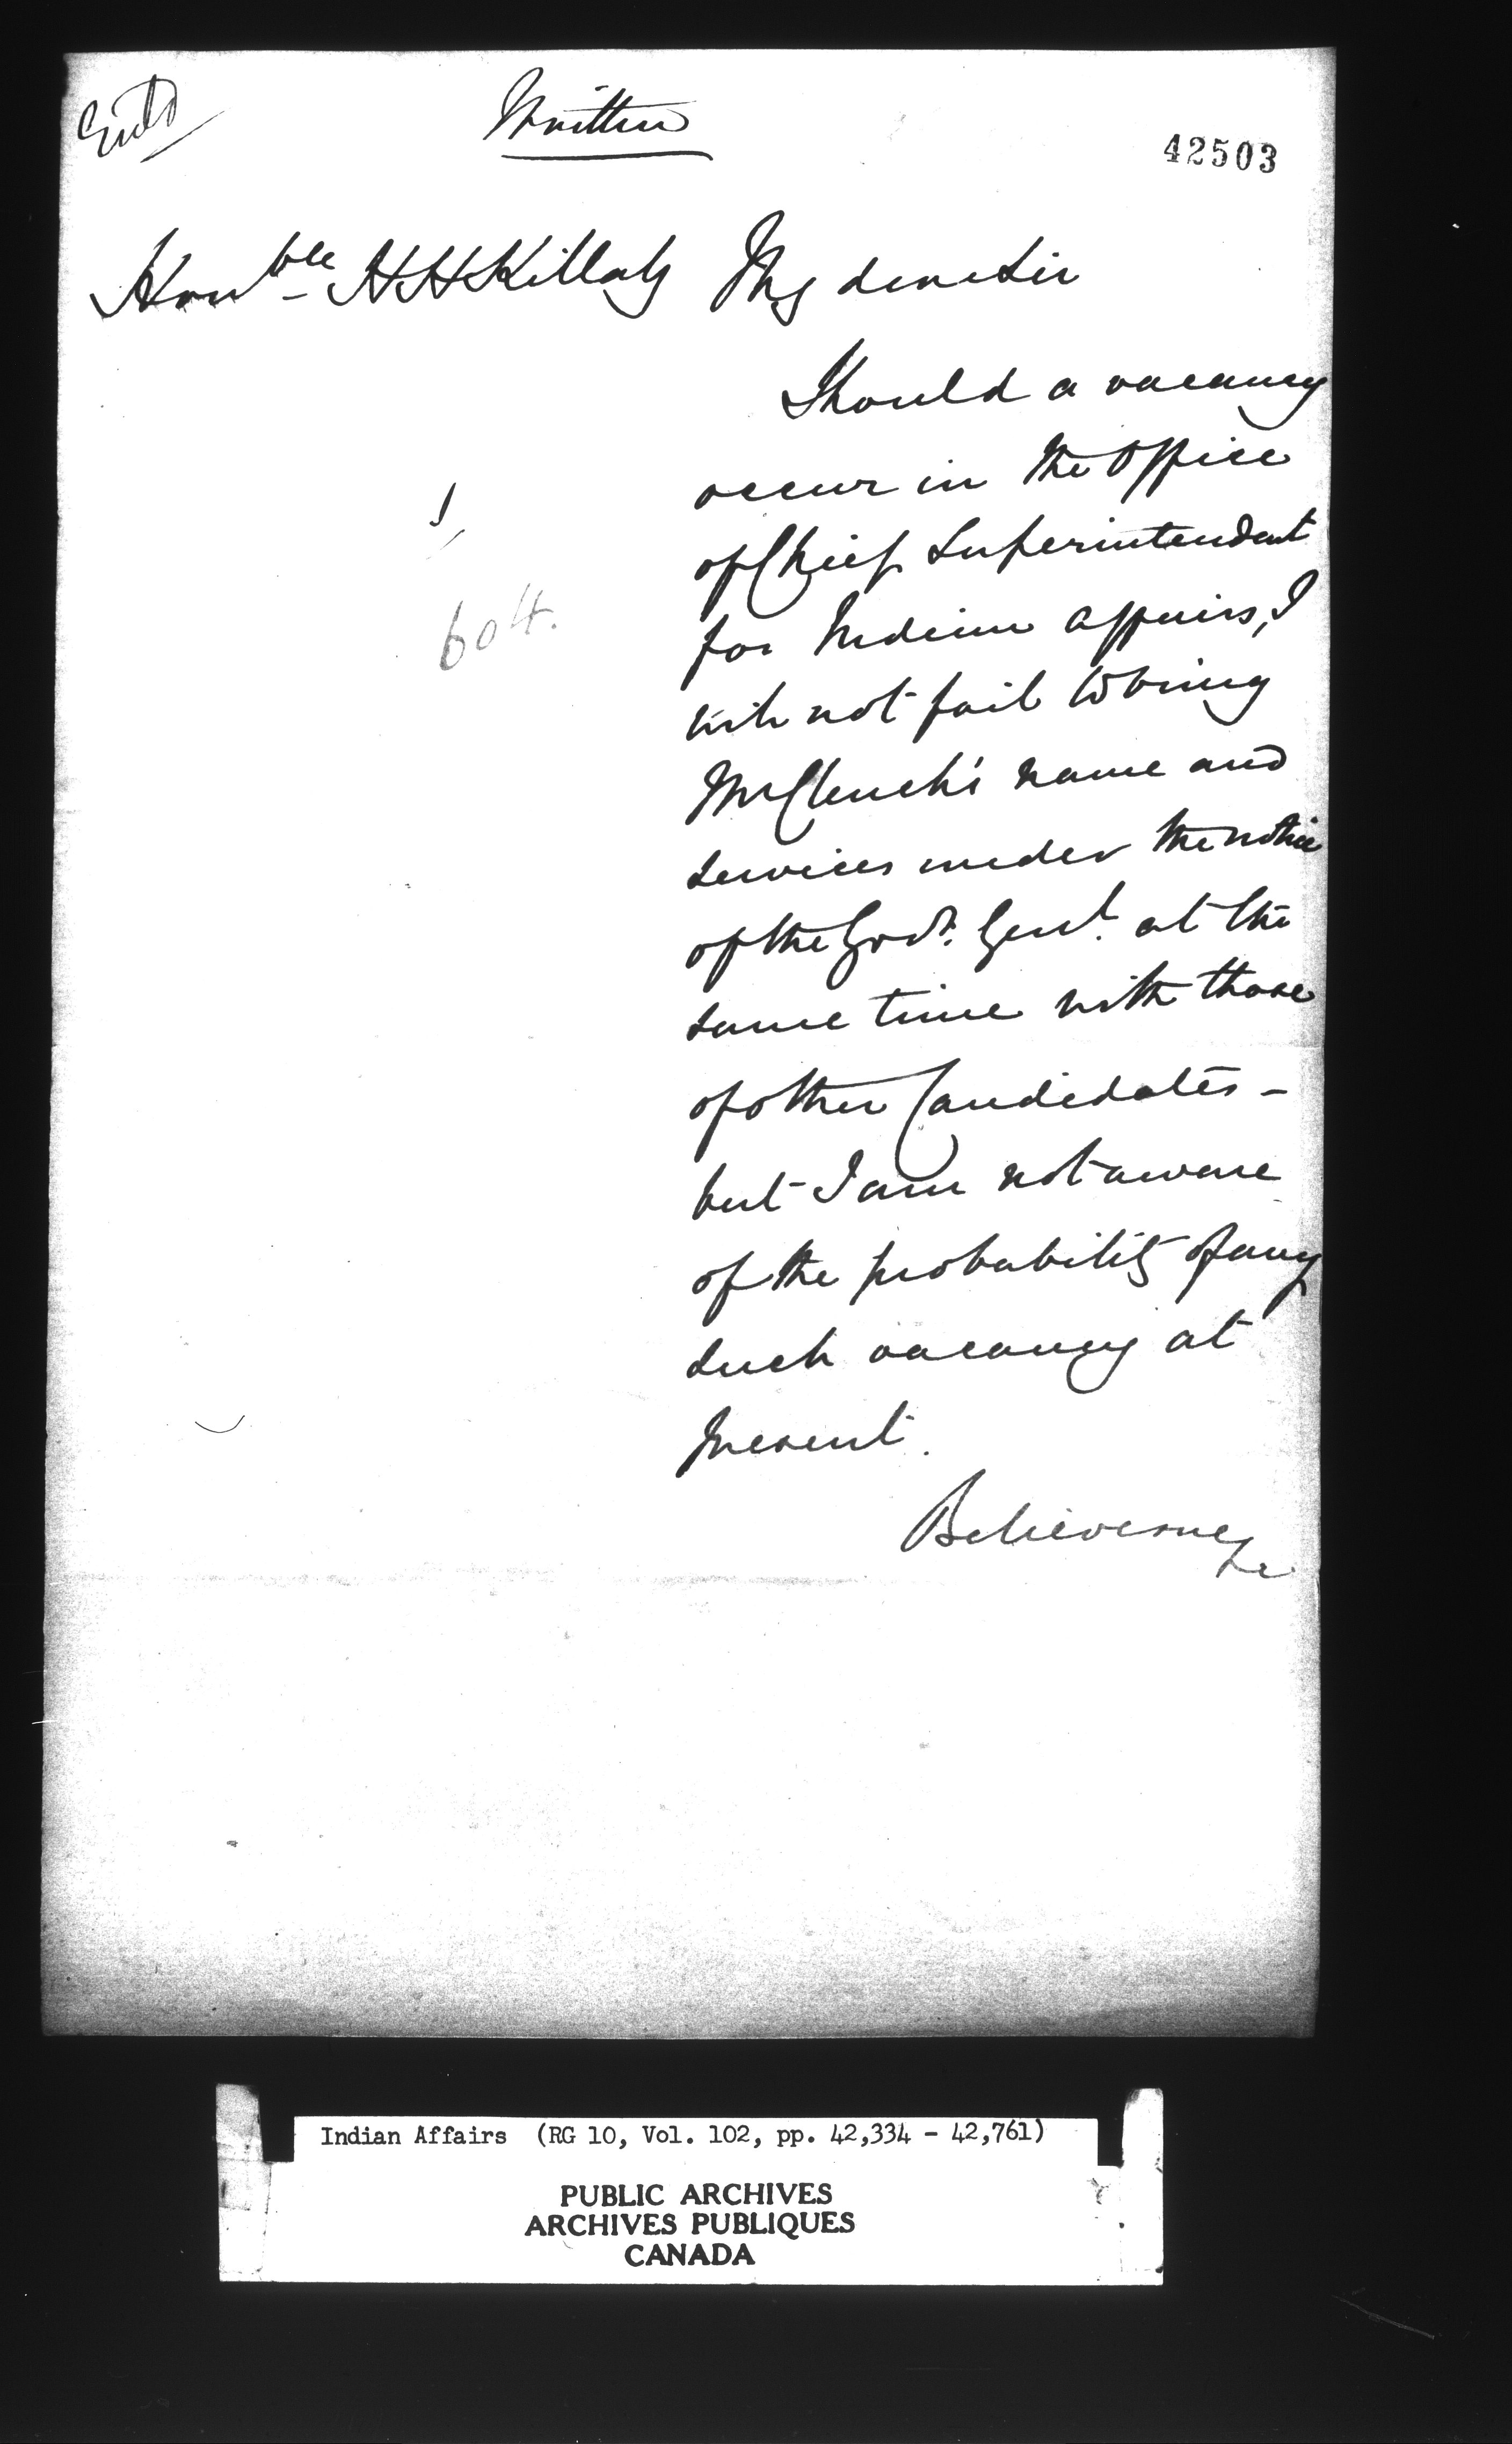 Entd
Written
42503
Honble H H Killaly My dear Sir
Should a vacancy
occur in the Office
of Chief Superintendent
for Indian Affairs, I
will not fail to bring
Mr Clench's name and
services under the notice
of the Govr. Genl. at the
same time with those
of other Candidates -
but I am not aware
of the probability of any
such vacancy at
present.
Believe me
&c
604.
Indian Affairs (RG 10, Vol. 102, pp. 42,334 - 42,761)
PUBLIC ARCHIVES
ARCHIVES PUBLIQUES
CANADA